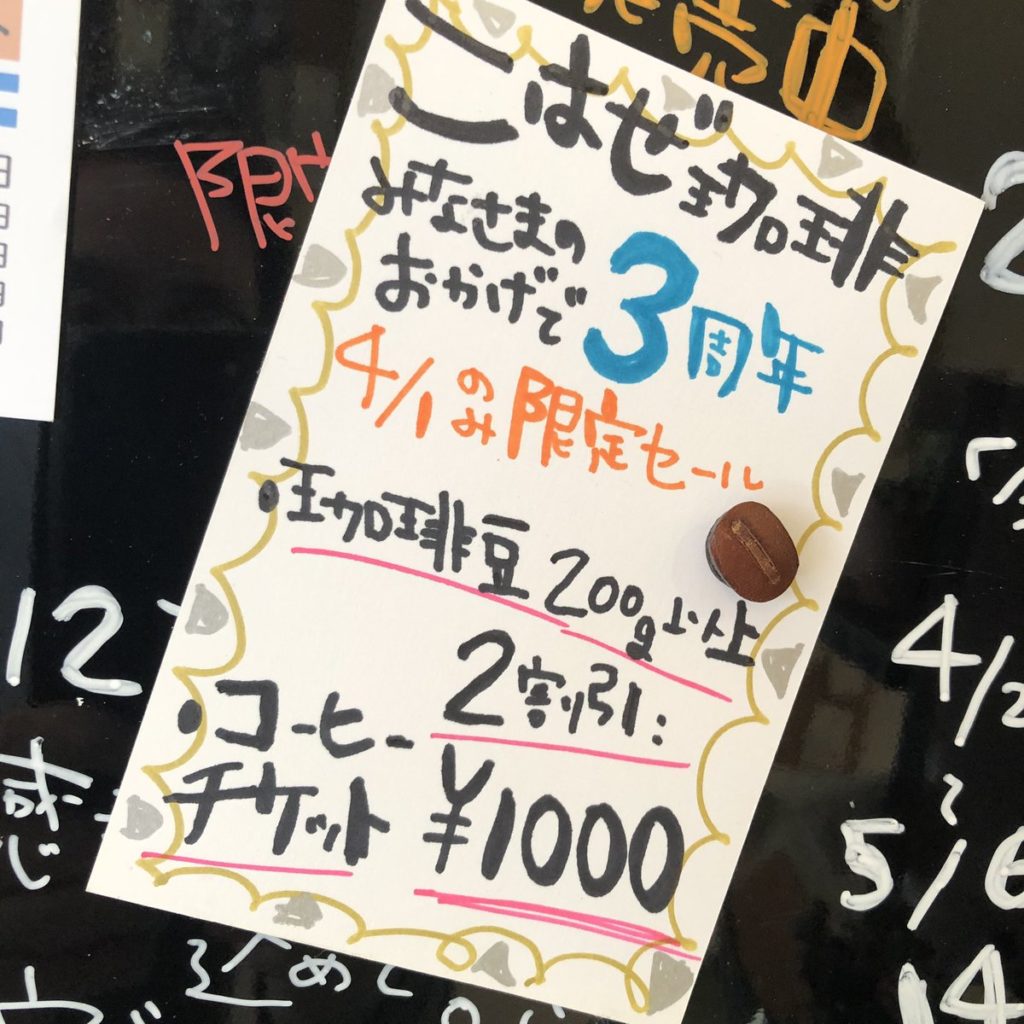 こはぜ珈琲
みなさまの
おかげで
3周年
4/1のみ限定セール
・珈琲豆200g以上
2割引:
・コーヒー
チケット ¥1000
売中
限
12
感じ
4/2
~
5/6
14